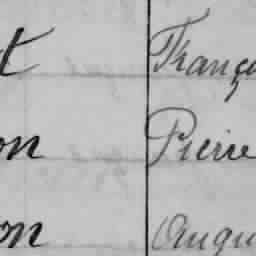 t Franço
on Pierre
on Augu